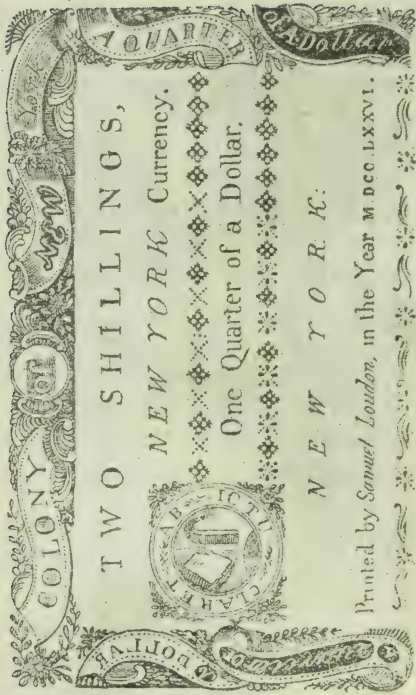 COLONY OF New York
A QUARTER of A Dollar
TWO SHILLINGS,
NEW YORK Currency.
One Quarter of a Dollar.
AB ICTU CLARET
NEW YORK:
Printed by Samuel Loudon, in the Year M.DCC.LXXVI.
DOLLAR